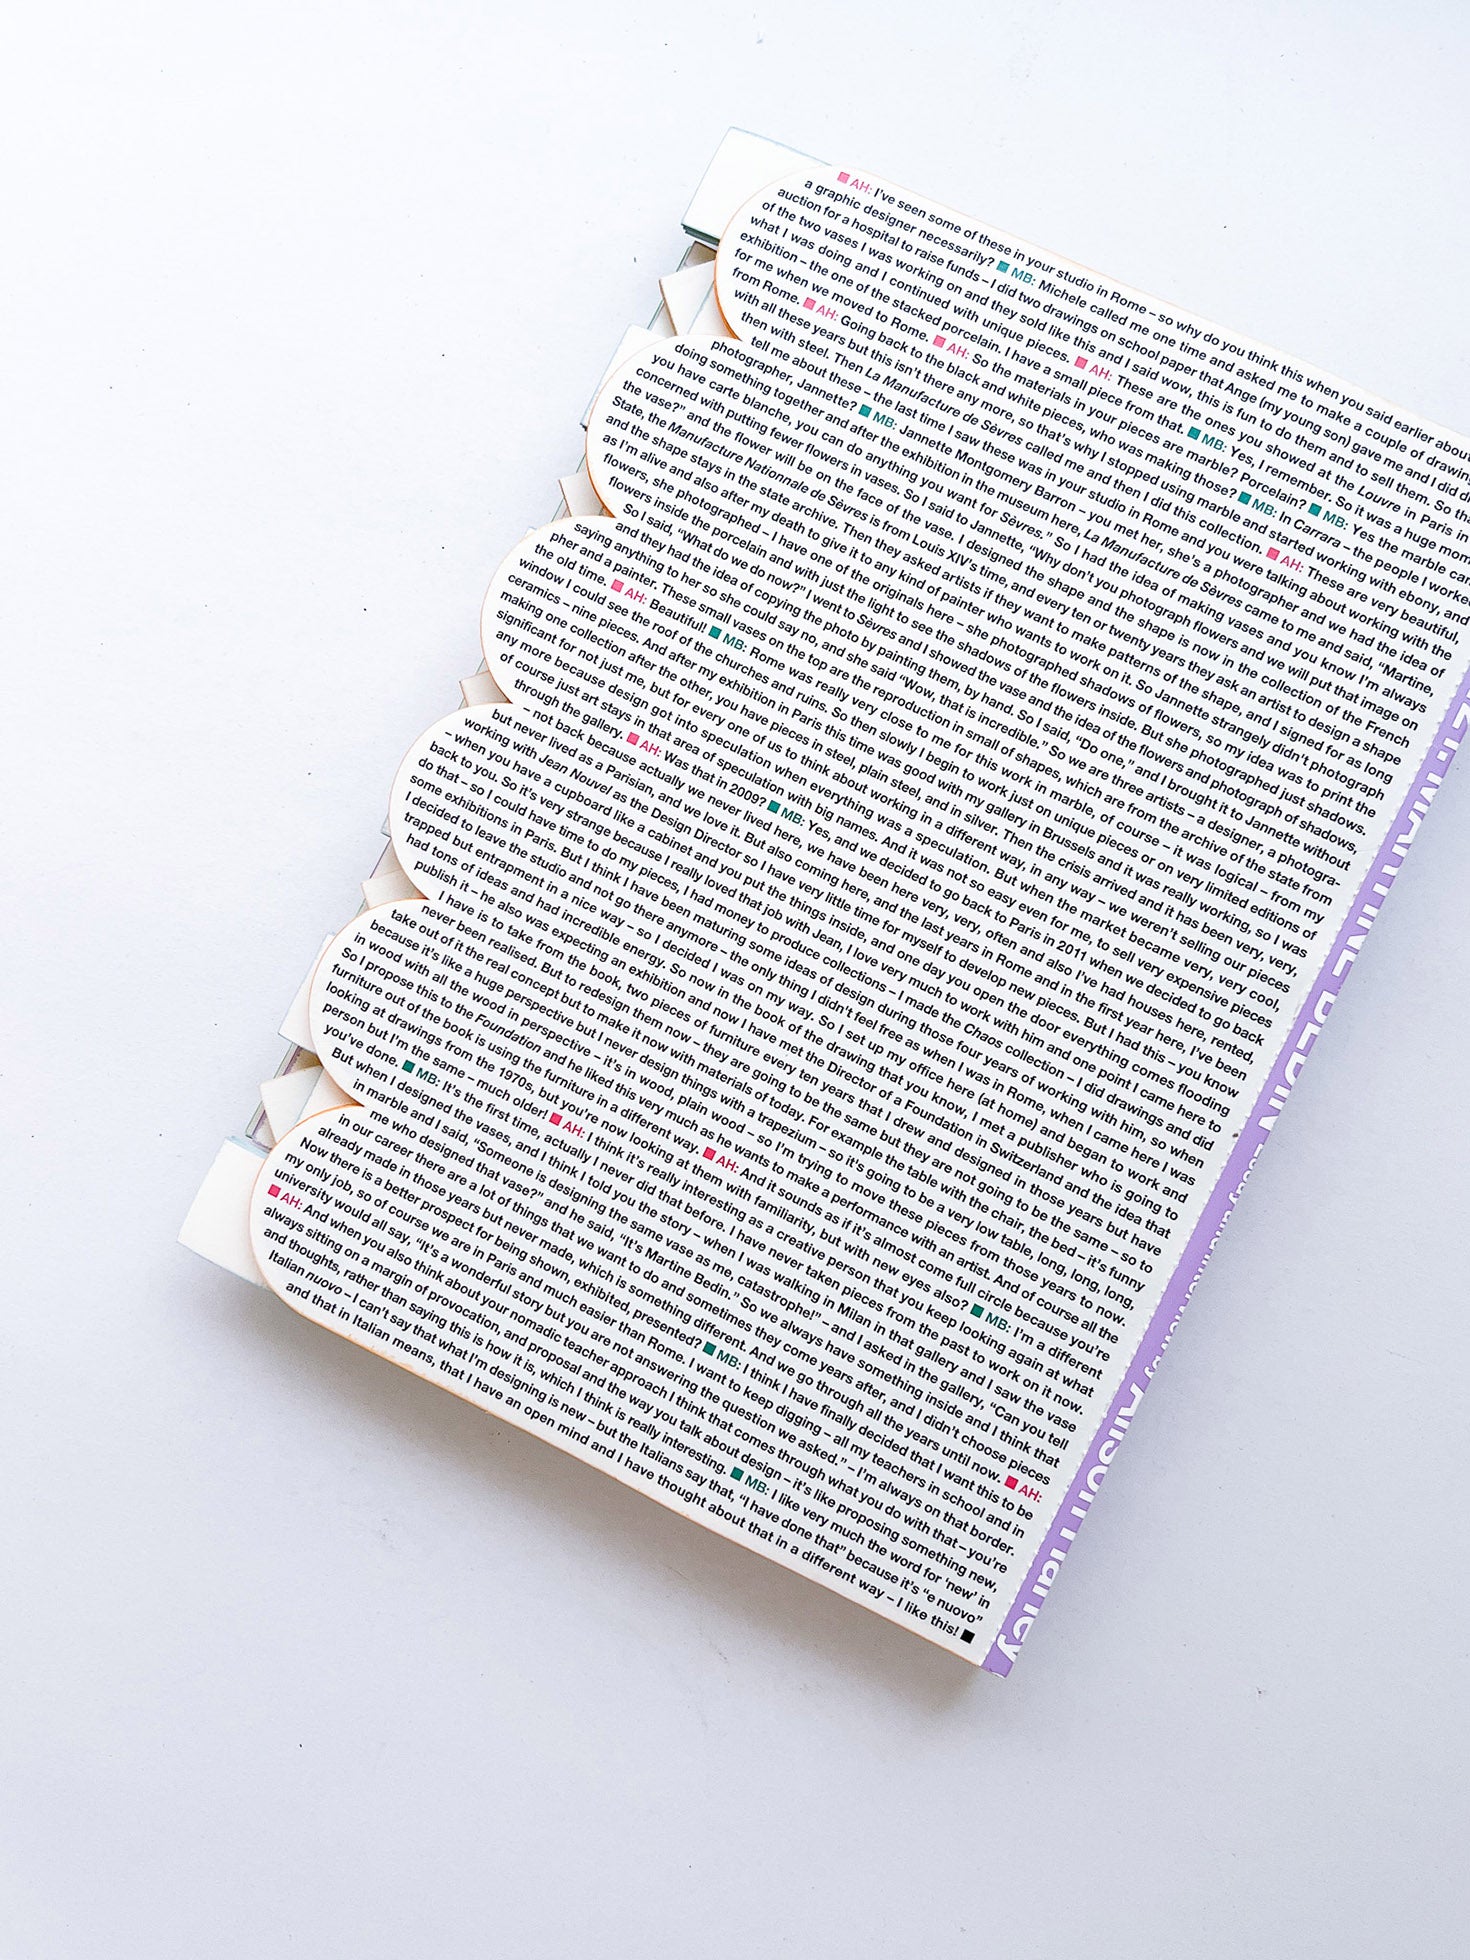 ■ AH: I've seen some of these in your studio in Rome – so why do you think this when you said earlier about
a graphic designer necessarily? ■ MB: Michele called me one time and asked me to make a couple of
auction for a hospital to raise funds – I did two drawings on school paper that Ange (my young son) gave me and I did
of the two vases I was working on and they sold like this and I said wow, this is fun to do them and to sell them. So
what I was doing and I continued with unique pieces. ■ AH: These are the ones you showed at the Louvre in Paris in
exhibition – the one of the stacked porcelain. I have a small piece from that. ■ MB: Yes, I remember. So it was a huge
for me when we moved to Rome. ■ AH: So the materials in your pieces are marble? Porcelain? ■ MB: Yes the marble
from Rome. ■ AH: Going back to the black and white pieces, who was making those? ■ MB: In Carrara – the people I worked
with all these years but this isn't there any more, so that's why I stopped using marble and started working with ebony, and
then with steel. Then La Manufacture de Sèvres called me and then I did this collection. ■ AH: These are very beautiful,
tell me about these – the last time I saw these was in your studio in Rome and you were talking about working with the
photographer, Jannette? ■ MB: Jannette Montgomery Barron – you met her, she's a photographer and we had the idea of
doing something together and after the exhibition in the museum here, La Manufacture de Sèvres came to me and said, "Martine,
you have carte blanche, you can do anything you want for Sèvres." So I had the idea of making vases and you know I'm always
concerned with putting fewer flowers in vases. So I said to Jannette, "Why don't you photograph flowers and we will put that image on
the vase?" and the flower will be on the face of the vase. I designed the shape and the shape is now in the collection of the French
State, the Manufacture Nationnale de Sèvres is from Louis XIV's time, and every ten or twenty years they ask an artist to design a shape
and the shape stays in the state archive. Then they asked artists if they want to make patterns of the shape, and I signed for as long
as I'm alive and also after my death to give it to any kind of painter who wants to work on it. So Jannette strangely didn't photograph
flowers, she photographed – I have one of the originals here – she photographed shadows of flowers, so my idea was to print the
flowers inside the porcelain and with just the light to see the shadows of the flowers inside. But she photographed just shadows.
So I said, "What do we do now?" I went to Sèvres and I showed the vase and the idea of the flowers and photograph of shadows,
and they had the idea of copying the photo by painting them, by hand. So I said, "Do one," and I brought it to Jannette without
saying anything to her so she could say no, and she said "Wow, that is incredible." So we are three artists – a designer, a photogra-
pher and a painter. These small vases on the top are the reproduction in small of shapes, which are from the archive of the state from
the old time. ■ AH: Beautiful! ■ MB: Rome was really very close to me for this work in marble, of course – it was logical – from my
window I could see the roof of the churches and ruins. So then slowly I begin to work just on unique pieces or on very limited editions of
ceramics – nine pieces. And after my exhibition in Paris this time was good with my gallery in Brussels and it was really working, so I was
making one collection after the other, you have pieces in steel, plain steel, and in silver. Then the crisis arrived and it has been very, very,
significant for not just me, but for every one of us to think about working in a different way, in any way – we weren't selling our pieces
any more because design got into speculation when everything was a speculation. But when the market became very, very cool,
of course just art stays in that area of speculation with big names. And it was not so easy even for me, to sell very expensive pieces
through the gallery. ■ AH: Was that in 2009? ■ MB: Yes, and we decided to go back to Paris in 2011 when we decided to go back
– not back because actually we never lived here, we have been here very, very, often and also I've had houses here, rented,
but never lived as a Parisian, and we love it. But also coming here, and the last years in Rome and in the first year here, I've been
working with Jean Nouvel as the Design Director so I have very little time for myself to develop new pieces. But I had this – you know
– when you have a cupboard like a cabinet and you put the things inside, and one day you open the door everything comes flooding
back to you. So it's very strange because I really loved that job with Jean, I love very much to work with him and one point I came here to
do that – so I could have time to do my pieces, I had money to produce collections – I made the Chaos collection – I did drawings and did
some exhibitions in Paris. But I think I have been maturing some ideas of design during those four years of working with him, so when
I decided to leave the studio and not go there anymore – the only thing I didn't feel free as when I was in Rome, when I came here I was
trapped but entrapment in a nice way – so I decided I was on my way. So I set up my office here (at home) and began to work and
had tons of ideas and had incredible energy. So now in the book of the drawing that you know, I met a publisher who is going to
publish it – he also was expecting an exhibition and now I have met the Director of a Foundation in Switzerland and the idea that
I have is to take from the book, two pieces of furniture every ten years that I drew and designed in those years but have
never been realised. But to redesign them now – they are going to be the same but they are not going to be the same – so to
take out of it the real concept but to make it now with materials of today. For example the table with the chair, the bed – it's funny
because it's like a huge perspective but I never design things with a trapezium – so it's going to be a very low table, long, long, long,
in wood with all the wood in perspective – it's in wood, plain wood – so I'm trying to move these pieces from those years to now.
So I propose this to the Foundation and he liked this very much as he wants to make a performance with an artist. And of course all the
furniture out of the book is using the furniture in a different way. ■ AH: And it sounds as if it's almost come full circle because you're
looking at drawings from the 1970s, but you're now looking at them with familiarity, but with new eyes also? ■ MB: I'm a different
person but I'm the same – much older! ■ AH: I think it's really interesting as a creative person that you keep looking again at what
you've done. ■ MB: It's the first time, actually I never did that before. I have never taken pieces from the past to work on it now.
But when I designed the vases, and I think I told you the story – when I was walking in Milan in that gallery and I saw the vase
in marble and I said, "Someone is designing the same vase as me, catastrophe!" – and I asked in the gallery, "Can you tell
me who designed that vase?" and he said, "It's Martine Bedin." So we always have something inside and I think that
in our career there are a lot of things that we want to do and sometimes they come years after, and I didn't choose pieces
already made in those years but never made, which is something different. And we go through all the years until now. ■ AH:
Now there is a better prospect for being shown, exhibited, presented? ■ MB: I think I have finally decided that I want this to be
my only job, so of course we are in Paris and much easier than Rome. I want to keep digging – all my teachers in school and in
university would all say, "It's a wonderful story but you are not answering the question we asked." – I'm always on that border.
■ AH: And when you also think about your nomadic teacher approach I think that comes through what you do with that – you're
always sitting on a margin of provocation, and proposal and the way you talk about design – it's like proposing something new,
and thoughts, rather than saying this is how it is, which I think is really interesting. ■ MB: I like very much the word for 'new' in
Italian nuovo – I can't say that what I'm designing is new – but the Italians say that, "I have done that" because it's "e nuovo"
and that in Italian means, that I have an open mind and I have thought about that in a different way – I like this! ■
MARTINE BEDIN Alison Harley